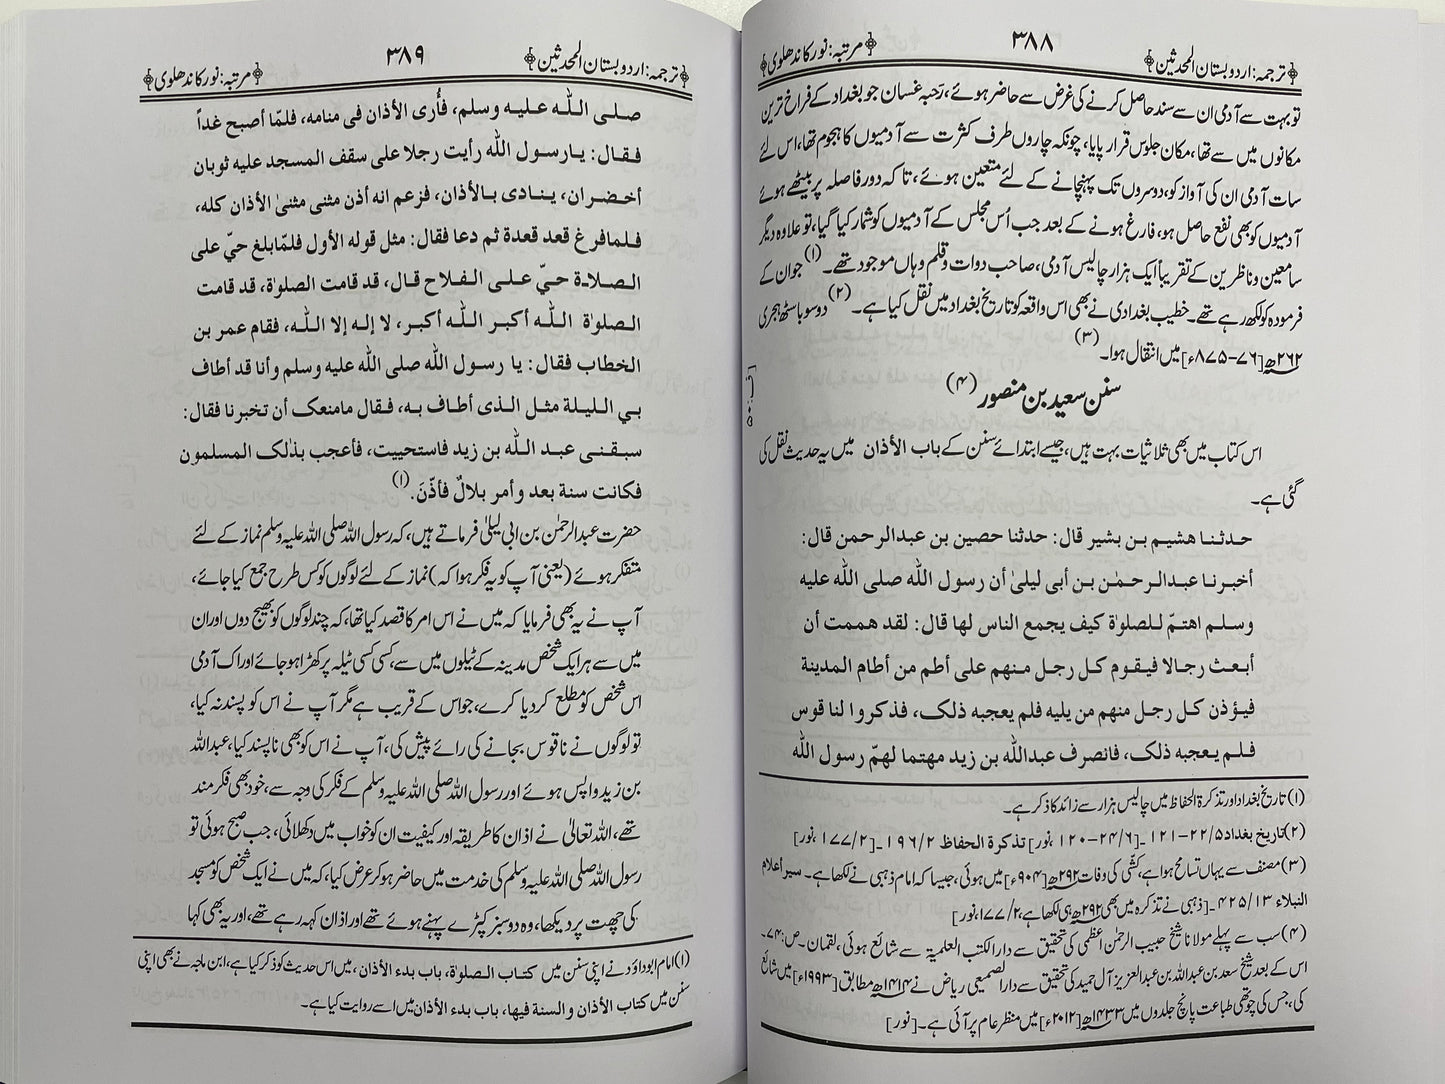 ﴿ترجمہ: اردو بستان المحدثین﴾ ۳۸۸ ﴿مرتبہ: نور کاندھلوی﴾
تو بہت سے آدمی ان سے سند حاصل کرنے کی غرض سے حاضر ہوئے، رَحبہ غسان جو بغداد کے فراخ ترین
مکانوں میں سے تھا، مکان جلوس قرار پایا، چونکہ چاروں طرف کثرت سے آدمیوں کا ہجوم تھا، اس لئے
سات آدمی ان کی آواز کو، دوسروں تک پہنچانے کے لئے متعین ہوئے، تاکہ دور فاصلہ پر بیٹھے ہوئے
آدمیوں کو بھی نفع حاصل ہو، فارغ ہونے کے بعد جب اُس مجلس کے آدمیوں کو شمار کیا گیا، تو علاوہ دیگر
سامعین و ناظرین کے تقریباً ایک ہزار چالیس آدمی، صاحب دوات و قلم وہاں موجود تھے۔ (۱) جو ان کے
فرمودہ کو لکھ رہے تھے۔ خطیب بغدادی نے بھی اس واقعہ کو تاریخ بغداد میں نقل کیا ہے۔ (۲) دو سو باسٹھ ہجری
۲۶۲ھ [۷۶–۸۷۵ء] میں انتقال ہوا۔ (۳)
سنن سعید بن منصور (۴)
[ف: ۵۰]
اس کتاب میں بھی ثلاثیات بہت ہیں، جیسے ابتدائے سنن کے باب الأذان میں یہ حدیث نقل کی
گئی ہے۔
حدثنا هشيم بن بشير قال: حدثنا حصين بن عبدالرحمن قال:
أخبرنا عبدالرحمٰن بن أبي ليلىٰ أن رسول الله صلى الله عليه
وسلم اهتمّ للصلوٰة كيف يجمع الناس لها قال: لقد هممت أن
أبعث رجالا فيقوم كل رجل منهم على أطم من أطام المدينة
فيؤذن كل رجل منهم من يليه فلم يعجبه ذلك، فذكروا لنا قوس
فلم يعجبه ذلك، فانصرف عبدالله بن زيد مهتما لهمّ رسول الله
(۱) تاریخ بغداد اور تذکرۃ الحفاظ میں چالیس ہزار سے زائد کا ذکر ہے۔
(۲) تاریخ بغداد ۲۲/۵–۱۲۱۔ [۲۴/۶–۱۲۰، نور] تذکرة الحفاظ ۱۹۶/۲۔ [۱۷۷/۲، نور]
(۳) مصنف سے یہاں تسامح ہوا ہے، کشّی کی وفات ۲۹۲ھ [۹۰۴ء] میں ہوئی، جیسا کہ امام ذہبی نے لکھا ہے۔ سیر أعلام
النبلاء ۴۲۵/۱۳۔ [ذہبی نے تذکرہ میں بھی ۲۹۲ھ ہی لکھا ہے، ۱۷۷/۲، نور]
(۴) سب سے پہلے مولانا شیخ حبیب الرحمٰن اعظمی کی تحقیق سے دارالکتب العلمیة سے شائع ہوئی، لقمان۔ ص: ۷۴۔
اس کے بعد شیخ سعد بن عبداللہ بن عبدالعزیز آل حمید کی تحقیق سے دار الصمیعی ریاض نے ۱۴۱۴ھ مطابق [۱۹۹۳ء] میں شائع
کی، جس کی چوتھی طباعت پانچ جلدوں میں ۱۴۳۳ھ [۲۰۱۲ء] میں منظر عام پر آئی ہے۔ [نور]
﴿ترجمہ: اردو بستان المحدثین﴾ ۳۸۹ ﴿مرتبہ: نور کاندھلوی﴾
صلى الله عليه وسلم، فأُرى الأذان فى منامه، فلمّا أصبح غداً
فقال: يارسول الله رأيت رجلا على سقف المسجد عليه ثوبان
أخضران، ينادى بالأذان، فزعم انه أذن مثنى مثنىٰ الأذان كله،
فلمافرغ قعد قعدة ثم دعا فقال: مثل قوله الأول فلمّابلغ حيّ على
الصلاة حيّ على الفلاح قال، قد قامت الصلوٰة، قد قامت
الصلوٰة الله أكبر الله أكبر، لا إله إلا الله، فقام عمر بن
الخطاب فقال: يا رسول الله صلى الله عليه وسلم وأنا قد أطاف
بي الليلة مثل الذى أطاف به، فقال مامنعك أن تخبرنا فقال:
سبقنى عبد الله بن زيد فاستحييت، فأعجب بذلك المسلمون
فكانت سنة بعد وأمر بلالٌ فأذّن. (۱)
حضرت عبدالرحمٰن بن ابی لیلیٰ فرماتے ہیں، کہ رسول اللہ صلی اللہ علیہ وسلم نماز کے لئے
متفکر ہوئے (یعنی آپ کو یہ فکر ہوا کہ) نماز کے لئے لوگوں کو کس طرح جمع کیا جائے،
آپ نے یہ بھی فرمایا کہ میں نے اس امر کا قصد کیا تھا، کہ چند لوگوں کو بھیج دوں اور ان
میں سے ہر ایک شخص مدینہ کے ٹیلوں میں سے، کسی کسی ٹیلہ پر کھڑا ہو جائے اور اک آدمی
اس شخص کو مطلع کر دیا کرے، جو اس کے قریب ہے مگر آپ نے اس کو پسند نہ کیا،
تو لوگوں نے ناقوس بجانے کی رائے پیش کی، آپ نے اس کو بھی ناپسند کیا، عبداللہ
بن زید واپس ہوئے اور رسول اللہ صلی اللہ علیہ وسلم کے فکر کی وجہ سے، خود بھی فکر مند
تھے، اللہ تعالیٰ نے اذان کا طریقہ اور کیفیت ان کو خواب میں دکھلائی، جب صبح ہوئی تو
رسول اللہ صلی اللہ علیہ وسلم کی خدمت میں حاضر ہو کر عرض کیا، کہ میں نے ایک شخص کو مسجد
کی چھت پر دیکھا، وہ دو سبز کپڑے پہنے ہوئے تھے اور اذان کہہ رہے تھے، اور یہ بھی کہا
(۱) امام ابوداؤد نے اپنی سنن میں کتاب الصلوٰة، باب بدء الأذان، میں اس حدیث کو ذکر کیا ہے، ابن ماجہ نے بھی اپنی
سنن میں کتاب الأذان و السنة فيها، باب بدء الأذان میں اسے روایت کیا ہے۔